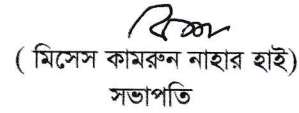 ( মিসেস কামরুন নাহার হাই)
সভাপতি